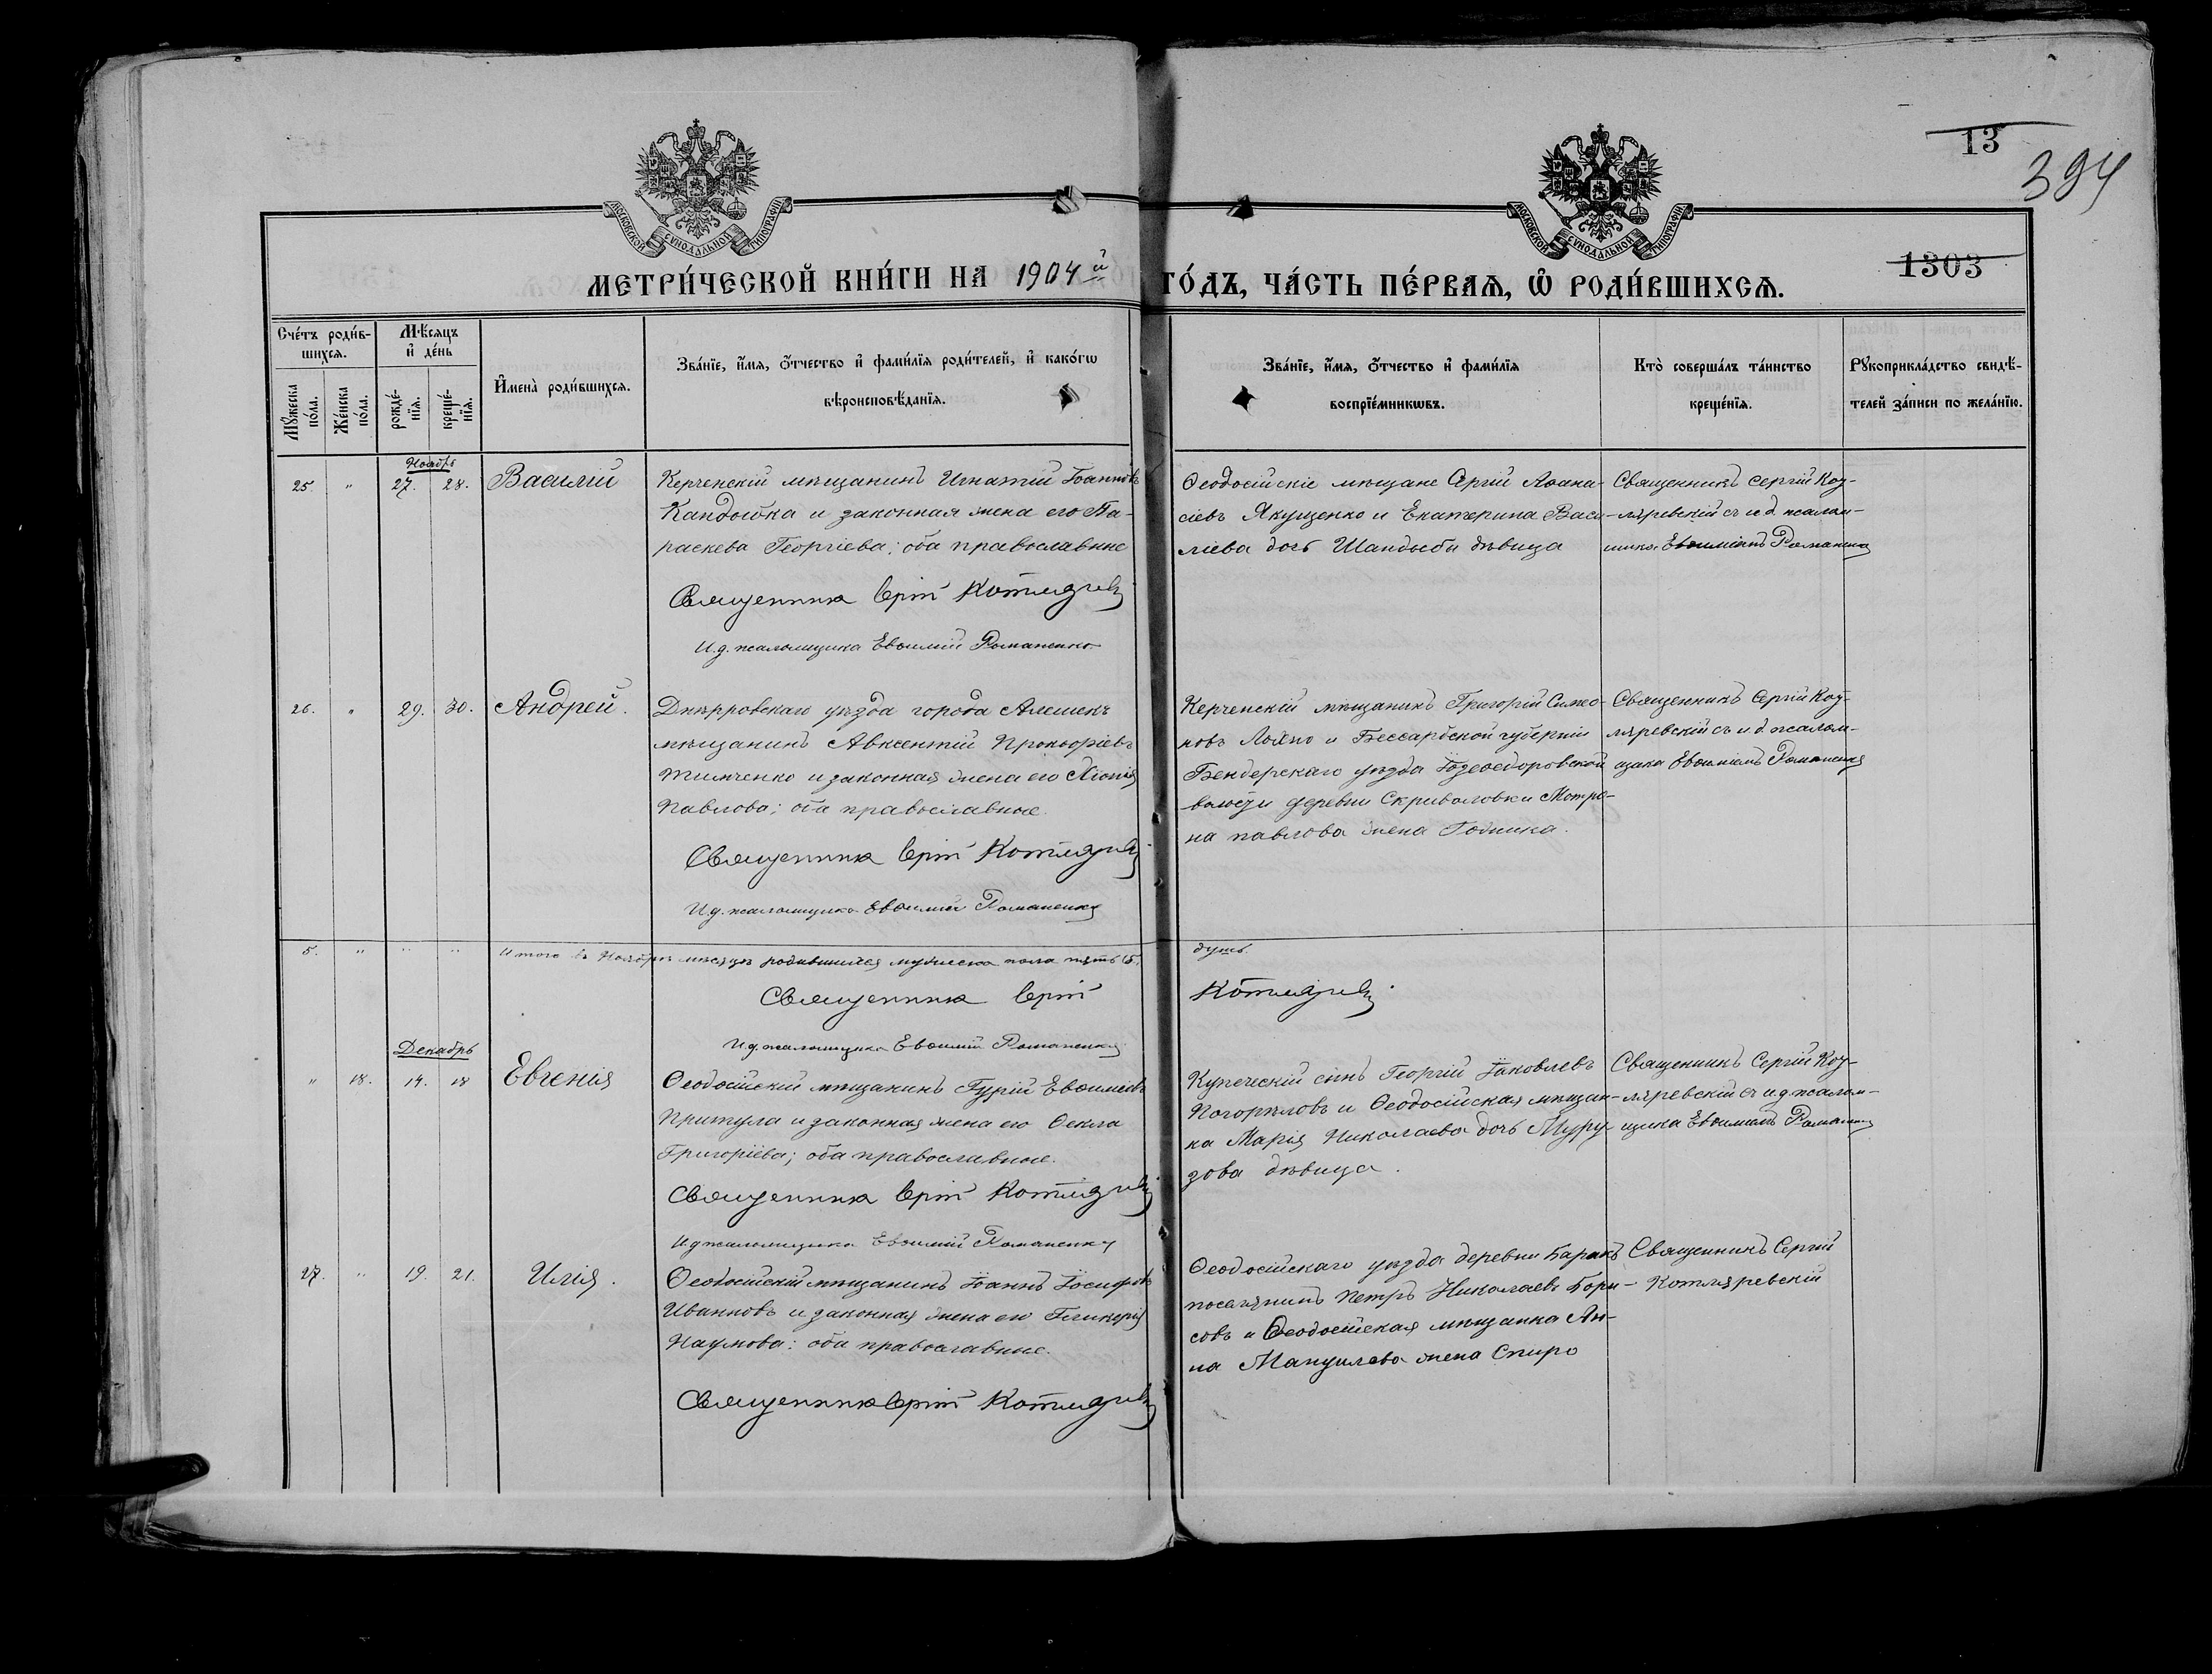 13
394
МОСКОВСКОЙ СѴНОДАЛЬНОЙ ТИПОГРАФІИ
МОСКОВСКОЙ СѴНОДАЛЬНОЙ ТИПОГРАФІИ
1303
МЕТРИ́ЧЕСКОЙ КНИ́ГИ НА 1904й ГО́ДЪ, ЧА́СТЬ ПЕ́РВАѦ, Ѽ РОДИ́ВШИХСѦ.
Сче́тъ роди́в-
шихсѧ.
Мꙋ́жеска по́ла.
Же́нска по́ла.
Мѣ́сяцъ
и҆ де́нь
рожде́-
нїѧ.
креще́-
нїѧ.
И҆мена̀ роди́вшихсѧ.
Зва́нїе, и҆́мѧ, ѻ҆́тчество и҆ фами́лїѧ роди́телей, и҆ како́гѡ
вѣроисповѣ́данїѧ.
Зва́нїе, и҆́мѧ, ѻ҆́тчество и҆ фами́лїѧ
воспрїе́мникѡвъ.
Кто̀ соверша́лъ та́инство
креще́нїѧ.
Рꙋкоприкла́дство свидѣ́-
телей за́писи по жела́нїю.
Ноябрь
25. " 27. 28. Василій
Керченскій мѣщанинъ Игнатій Іоанновъ
и законная жена его Па-
раскева Георгіева; оба православные
Священникъ Сергій Котляревскій
И.д. псаломщика Евѳимій Романенко
Ѳеодосійскіе мѣщане Сергій Аѳана-
сіевъ Якущенко и Екатерина Васи-
ліева дочь дѣвица
Священникъ Сергій Кот-
ляревскій съ и.д. псалом-
щика Евѳиміемъ Романенко
26. " 29. 30. Андрей.
Днѣпровскаго уѣзда города Алешекъ
мѣщанинъ Авксентій Прокофіевъ
Тимченко и законная жена его Хіонія
Павлова; оба православные.
Священникъ Сергій Котляревскій
И.д. псаломщика Евѳимій Романенко
Керченскій мѣщанинъ Григорій Симео-
новъ и Бессарабской губерніи
Бендерскаго уѣзда
волости деревни Скриволовки Матре-
на Павлова жена
Священникъ Сергій Кот-
ляревскій съ и.д. псалом-
щика Евѳиміемъ Романенко
5. " " " Итого въ Ноябрѣ мѣсяцѣ родившихся мужеска пола пять (5) душъ.
Священникъ Сергій Котляревскій
И.д. псаломщика Евѳимій Романенко
Декабрь
" 18. 14. 18 Евгенія
Ѳеодосійскій мѣщанинъ Гурій Евѳиміевъ
Притула и законная жена его Ѳекла
Григоріева; оба православные.
Священникъ Сергій Котляревскій
И.д. псаломщика Евѳимій Романенко
Купеческій сынъ Георгій Іаковлевъ
Погорѣловъ и Ѳеодосійская мѣщан-
ка Марія Николаева дочь Муру-
зова дѣвица.
Священникъ Сергій Кот-
ляревскій съ и.д. псалом-
щика Евѳиміемъ Романенко
27. " 19. 21. Илія.
Ѳеодосійскій мѣщанинъ Іоаннъ Іосифовъ
Иванновъ и законная жена его Гликерія
Наумова; оба православные.
Священникъ Сергій Котляревскій
Ѳеодосійскаго уѣзда деревни Баракъ
поселянинъ Петръ Николаевъ Бори-
совъ и Ѳеодосійская мѣщанка Ан-
на Мануилова жена Спиро
Священникъ Сергій
Котляревскій